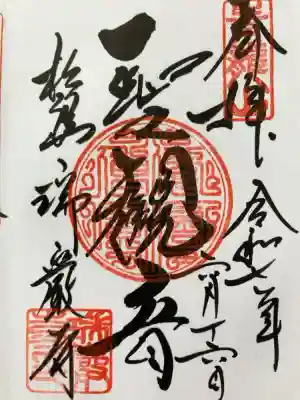 奉拝 令和七年
六月十六日
聖観音
松島 瑞巌寺